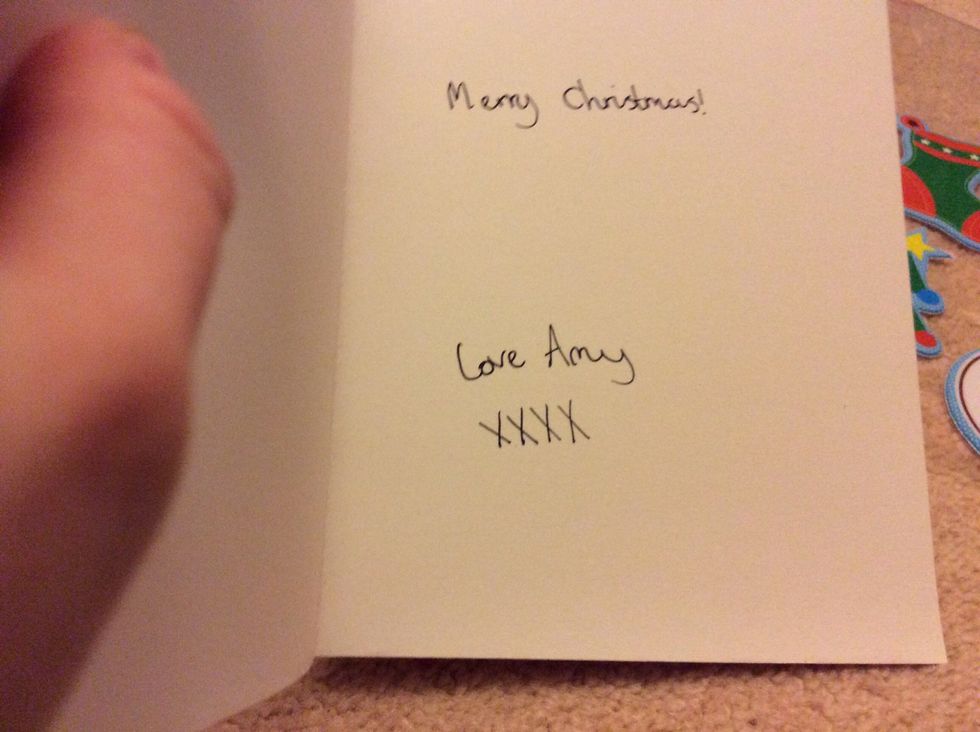 Merry Christmas!
Love Amy
XXXX